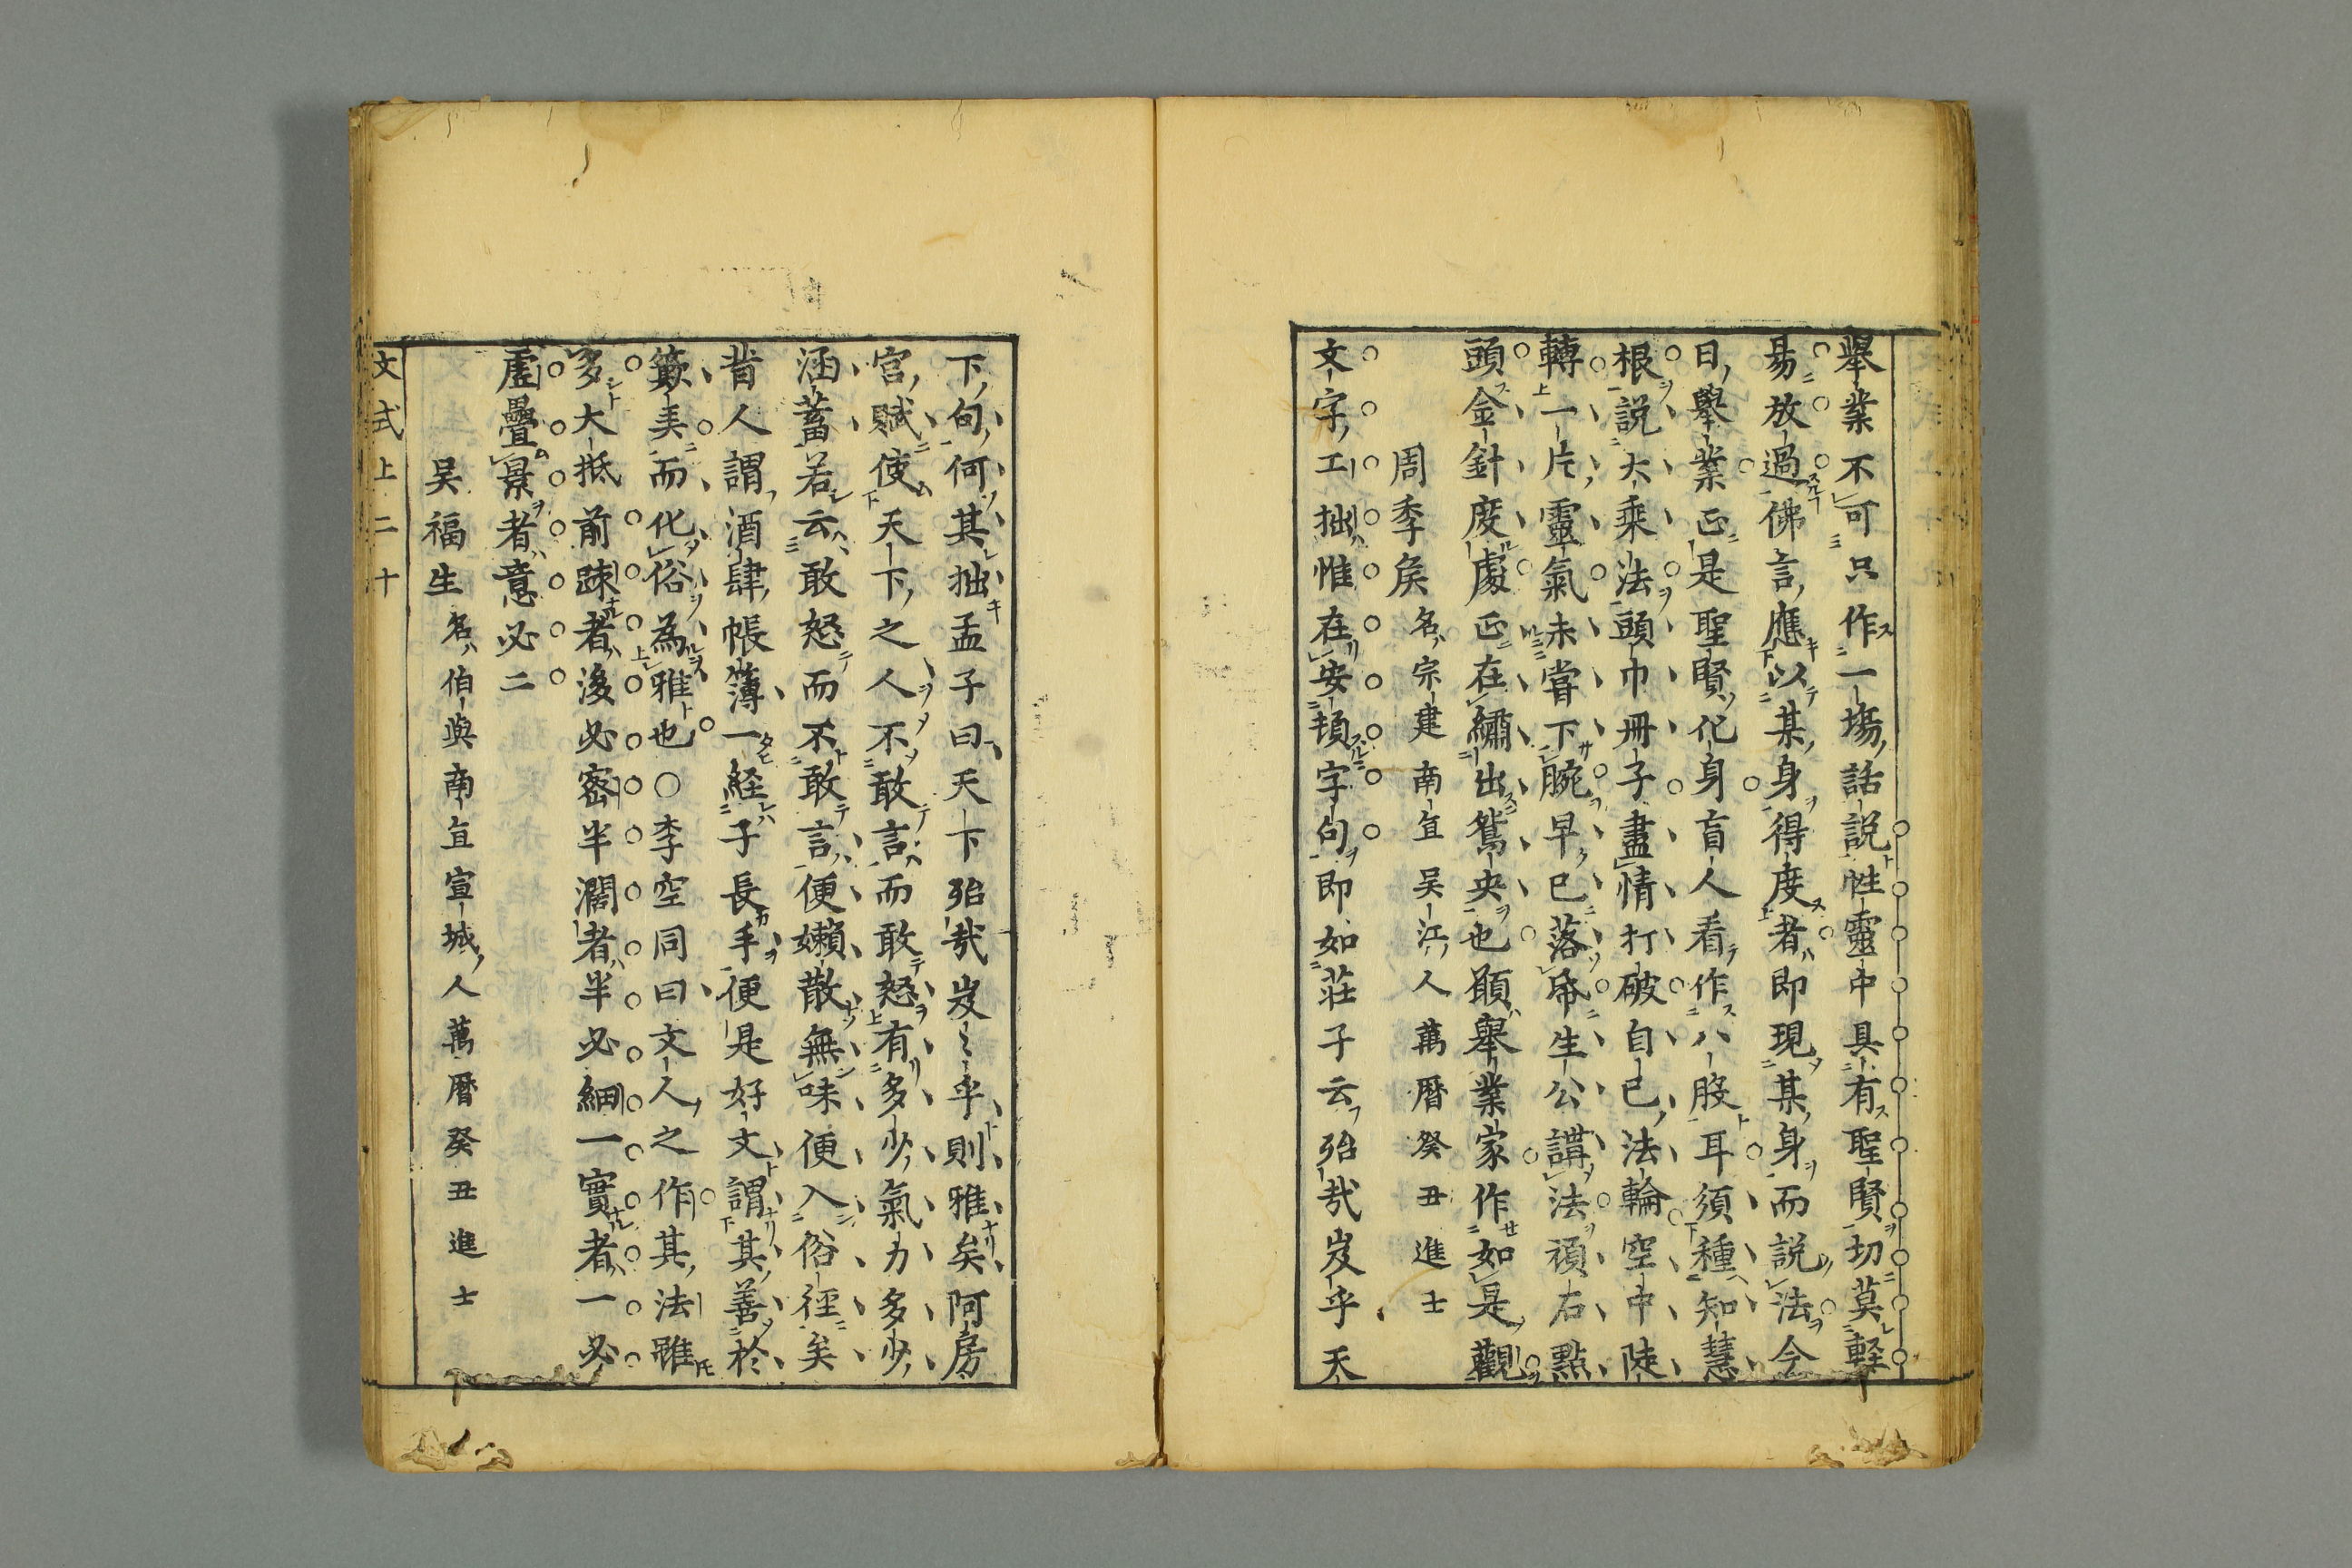 舉業不可只作一塲話說性靈中具有聖賢切莫輕
昜放過佛言應以某身得度者即現某身而說法今
日舉業正是聖賢化身盲人看作八股耳須種知慧
根說大乘法頭巾冊子盡情打破自己法輪空中陡
轉一片靈氣未嘗下腕早已落帋生公講法頑石點
頭金針度處正在繡出鴛央也願舉業家作如是觀
周季矦名宗建南直吴江人萬暦癸丑進士
文字工拙惟在安頓字句即如莊子云殆哉岌乎天
下句何其拙孟子曰天下殆哉岌〻乎則雅矣阿房
宫賦使天下之人不敢言而敢怒有多少氣力多少
涵蓄若云敢怒而不敢言便嬾散無味便入俗徑矣
昔人謂酒肆帳簿一経子長手便是好文謂其善於
籔美而化俗為雅也○李空同曰文人之作其法雖
多大抵前疎者後必密半濶者半必細一實者一必
虛疊景者意必二
吴福生名伯與南直宣城人萬暦癸丑進士
文式上二十